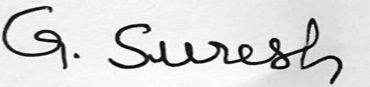 G. Suresh